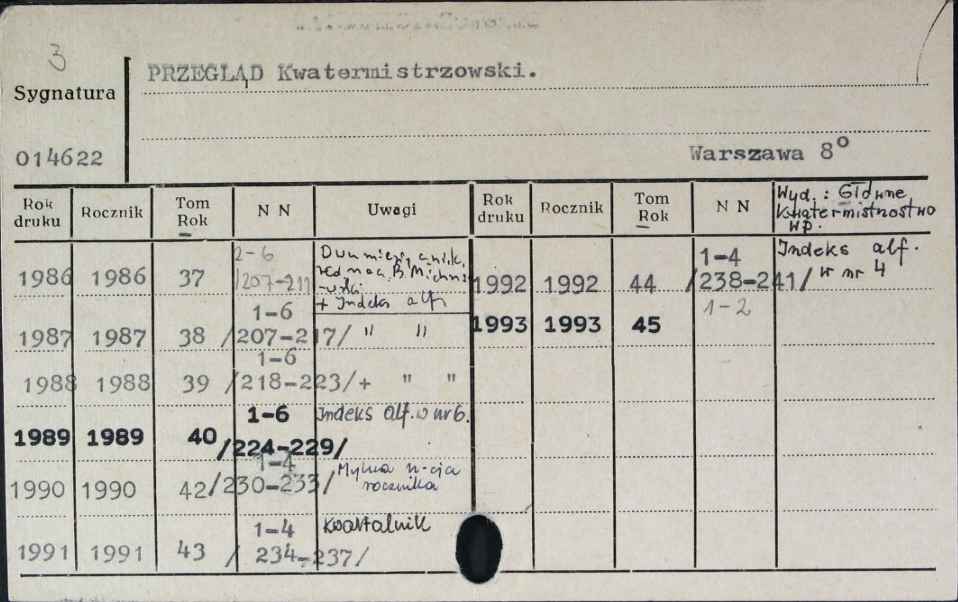 3
PRZEGLĄD Kwatermistrzowski.
Sygnatura
014622
Warszawa 8°
Rok druku Rocznik Tom Rok N N Uwagi
1986 1986 37 2-6 /207-211
Dwumiesięcznik.
red. nac. B. Michno
wski
+ Indeks alf.
1987 1987 38 1-6 /207-217/ " "
1988 1988 39 1-6 /218-223/ + " "
1989 1989 40 1-6 /224-229/ Indeks alf. w nr 6.
1990 1990 42 1-4 /230-233/ Mylna n-cja
rocznika
1991 1991 43 1-4 /234-237/ Kwartalnik
Rok druku Rocznik Tom Rok N N
Wyd.: Główne
Kwatermistrzostwo
WP.
1992 1992 44 1-4 /238-241/ Indeks alf.
w nr 4
1993 1993 45 1-2